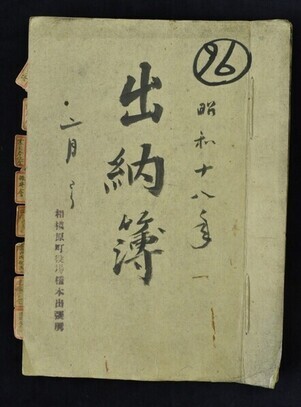 96
昭和十八年
出納簿
二月
相模原町役場橋本出張所